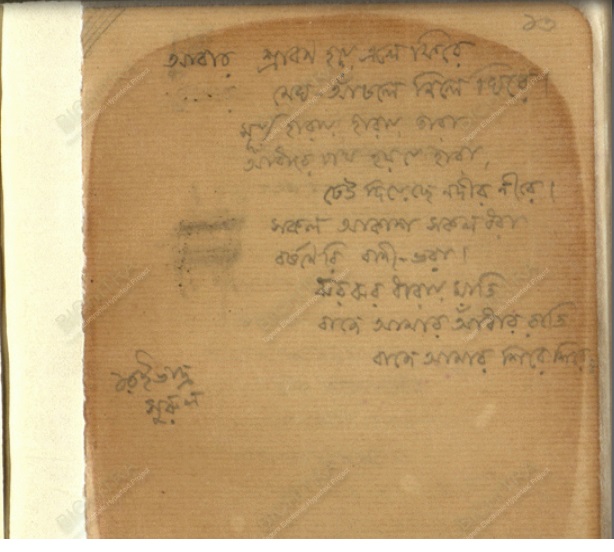 ১৩
আবার শ্রাবণ হয়ে এলে ফিরে
মেঘ-আঁচলে নিলে ঘিরে।
সূর্য হারায় হারায় তারা
আঁধারে পথ হয়যে হারা,
ঢেউ দিয়েছে নদীর নীরে।
সকল আকাশ সকল ধরা
বর্ষণেরি বাণী-ভরা।
ঝর ঝর ধারায় মাতি
বাজে আমার আঁধার রাতি
বাজে আমার শিরে শিরে
ভাদ্র
সুরুল